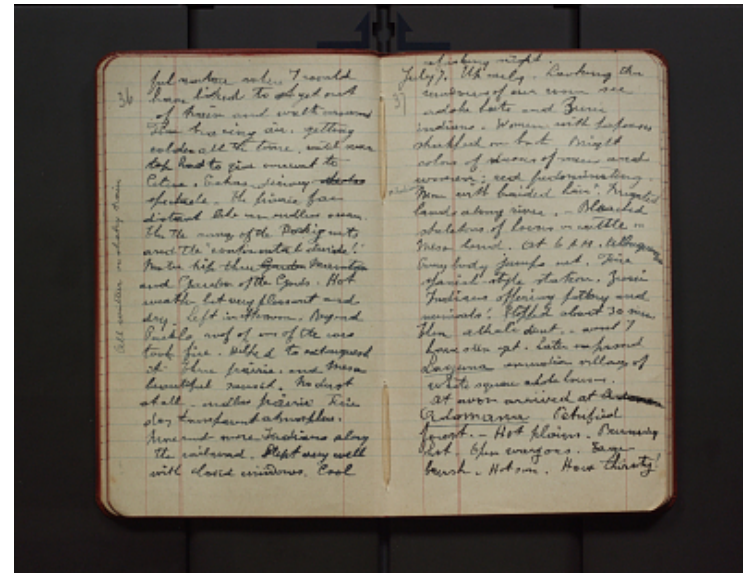 36
ful nature where I would
have liked to get out
of train and walk around
Fine bracing air. getting
colder all the time, until near
top had to give overcoat to
spectacle. The prairie far
distant like an endless ocean.
the the range of the Rocky mts
and the "continental divide".
and Garden of the Gods. Hot
weather but very pleasant and
dry. left in afternoon. Beyond
Pueblo, roof of one of the cars
took fire. Helped to extinguish
it. Then prairie and Mesa
beautiful sunset. No dust
at all. endless prairie Fine
dry transparent atmosphere.
more and more Indians along
the railroad. Slept very well
with closed windows. Cool
37
refreshing night.
July 7. Up early. Looking thr
windows of our room see
adobe huts and Zuni
indians. Women with papooses
strapped on back. Bright
colors of dresses of men and
women; red predominating.
Men with braided hair. Irrigated
lands along river. - Bleached
skeletons of horses or cattle in
Mesa land. At 6 A.M. Albuquerque
Everybody jumps out. Fine
spanish style station. Zuni
Indians offering pottery and
minerals. Stopped about 30 min
Later on passed
Laguna indian village of
white square adobe houses.
at noon arrived at
Adamana Petrified
forest. - Hot plains. Burning
hot Open wagons. Sage
brush. Hot sun. How thirsty!